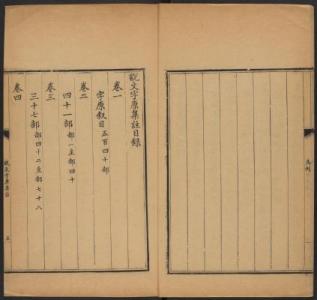 說文字原集註目錄
卷一
字原敘目五百四十部
卷二
四十一部部一至部四十
卷三
三十七部部四十二至部七十八
卷四
說文字原集註